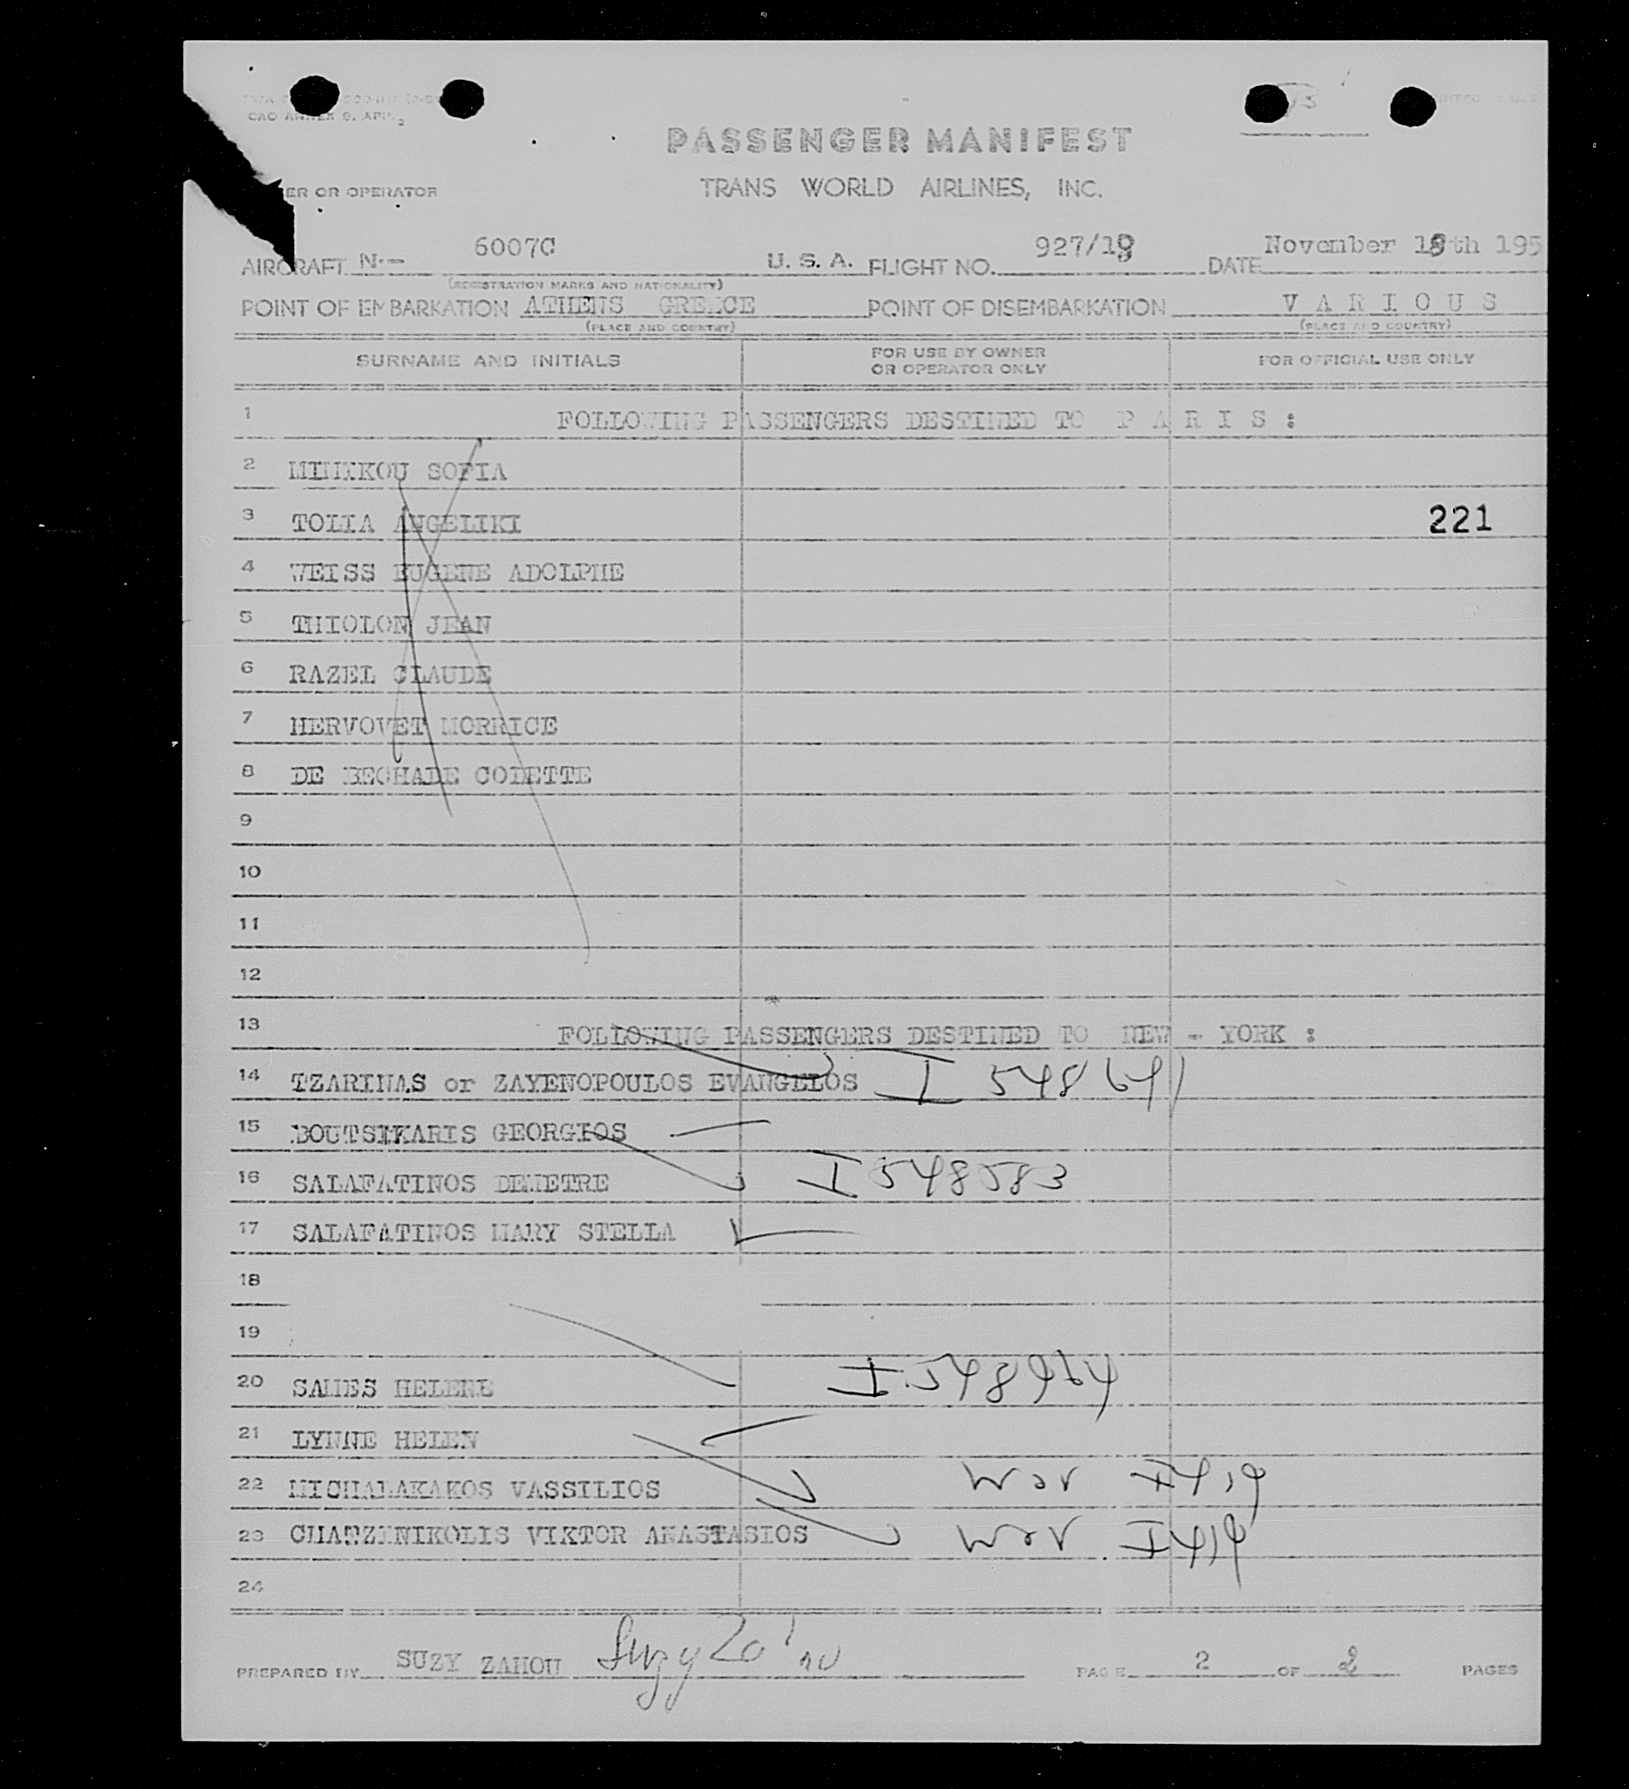 CAO ANNEX 9, APP. 2
ER OR OPERATOR
PASSENGER MANIFEST
TRANS WORLD AIRLINES, INC.
AIRCRAFT N-- 6007C U. S. A. FLIGHT NO. 927/19 DATE November 19th 195
(REGISTRATION MARKS AND NATIONALITY)
POINT OF EMBARKATION ATHENS GREECE POINT OF DISEMBARKATION V A R I O U S
(PLACE AND COUNTRY) (PLACE AND COUNTRY)
SURNAME AND INITIALS FOR USE BY OWNER OR OPERATOR ONLY FOR OFFICIAL USE ONLY
1 FOLLOWING PASSENGERS DESTINED TO P A R I S :
2 SOFIA
3 TOLIA ANGELIKI 221
4 WEISS EUGENE ADOLPHE
5 THIOLON JEAN
6 RAZEL CLAUDE
7 HERVOVET MORRICE
8 DE BECHADE CODETTE
9
10
11
12
13 FOLLOWING PASSENGERS DESTINED TO NEW - YORK :
14 TZARINAS or ZAYENOPOULOS EVANGELOS I 548641
15 BOUTSIKARIS GEORGIOS
16 SALAFATINOS DEMETRE I 548583
17 SALAFATINOS MARY STELLA
18
19
20 SAMES HELENE I 548964
21 LYNNE HELEN
22 MICHALAKAKOS VASSILIOS I419
23 CHATZINIKOLIS VIKTOR ANASTASIOS I419
24
PREPARED BY SUZY ZAHOU PAGE 2 OF 2 PAGES